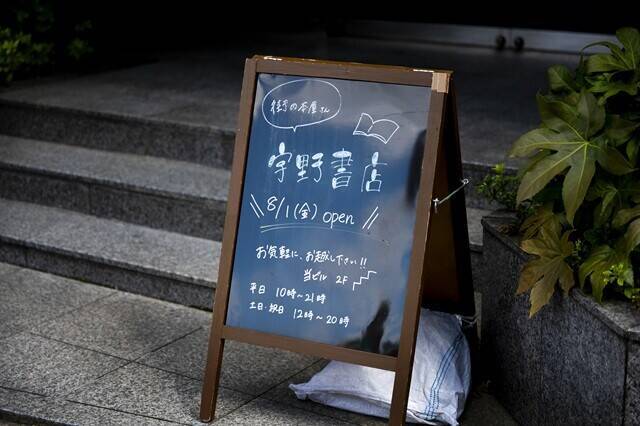 街の本屋さん
宇野書店
\\ 8/1(金) open //
お気軽に、お越し下さい!!
当ビル 2F
平日 10時〜21時
土日・祝日 12時〜20時